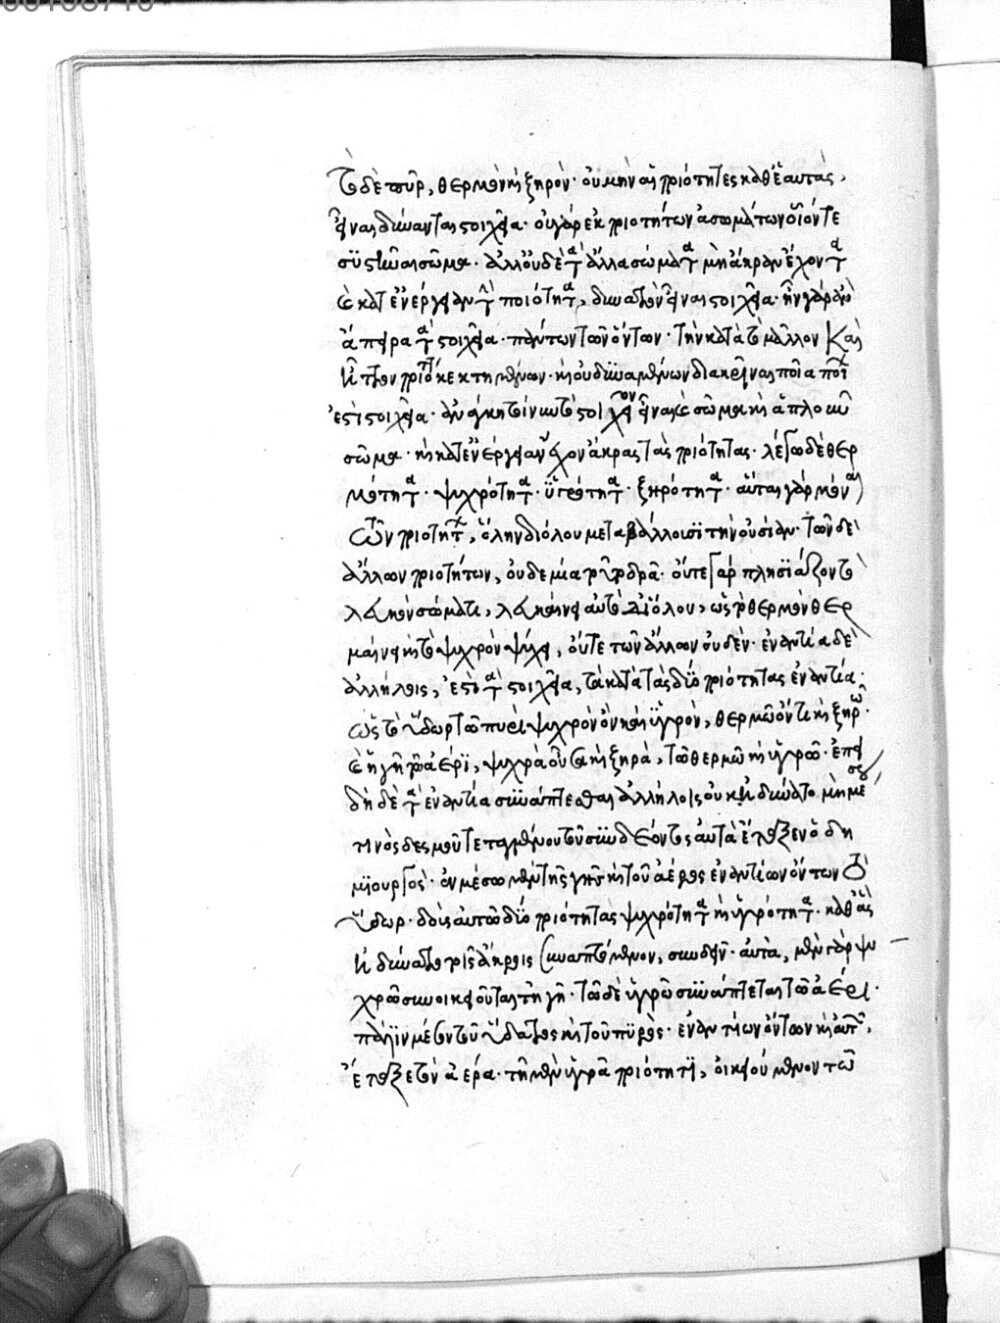 τὸ δὲ πῦρ, θερμὸν κὴ ξηρὸν· οὐ μὴν αἱ ποιότητες καθ' ἑαυτὰς,
εἶναι δύνανται στοιχεῖα· οὐ γὰρ ἐκ ποιοτήτων ἀσωμάτων οἷόν τε
συστῆναι σῶμα· ἀλλ' οὐδὲ τὰ ἄλλα σώματα μὴ ἄκραν ἔχοντα
κατ' ἐνέργειαν τὴν ποιότητα, δυνατὸν εἶναι στοιχεῖα· ἦν γὰρ ἂν
ἄπειρα τὰ στοιχεῖα· πάντων τῶν ὄντων· τὴν κατὰ τὸ μᾶλλον καὶ
ἧττον ποιότητα κεκτημένων· κὴ οὐ δυναμένων διακρῖναι ποῖα ποίων
ἐστὶ στοιχεῖα· ἀνάγκη τοίνυν τὸ στοιχεῖον εἶναι σῶμα κὴ ἁπλοῦν
σῶμα· κὴ κατ' ἐνέργειαν ἔχον ἄκρας τὰς ποιότητας· λέγω δὲ θερ
μότητα· ψυχρότητα· ὑγρότητα· ξηρότητα· αὗται γὰρ μόναι
τῶν ποιοτήτων, ὅλην διόλου μεταβάλλουσι τὴν οὐσίαν· τῶν δὲ
ἄλλων ποιοτήτων, οὐδεμία οὔτε γὰρ πλησιάζον τὸ
λευκὸν σώματι, λευκαίνει αὐτὸ διόλου, ὡς τὸ θερμὸν θερ
μαίνει κὴ τὸ ψυχρὸν ψύχει, οὔτε τῶν ἄλλων οὐδέν· ἐναντία δὲ
ἀλλήλοις, ἐστὶ τὰ στοιχεῖα, τὰ κατὰ τὰς δύο ποιότητας ἐναντία·
ὡς τὸ ὕδωρ τῶ πυρὶ ψυχρὸν ὂν κὴ ὑγρὸν, θερμῶ ὄντι κὴ ξηρῶ·
κὴ ἡ γῆ τῶ ἀέρι, ψυχρὰ οὖσα κὴ ξηρὰ, τῶ θερμῶ κὴ ὑγρῶ· ἐπει
δὴ δὲ τὰ ἐναντία συνάπτεσθαι ἀλλήλοις οὐκ ἠδύνατο μὴ μέσου
τινὸς δεσμοῦ τεταγμένου τοῦ συνδέοντος αὐτὰ ἔταξεν ὁ δη
μιουργὸς· ἐν μέσω μὲν τῆς γῆς κὴ τοῦ ἀέρος ἐναντίων ὄντων τὸ
ὕδωρ· δοὺς αὐτῶ δύο ποιότητας ψυχρότητα κὴ ὑγρότητα· καθ' ἃς
ἠδύνατο τοῖς ἄκροις συναπτόμενον, συνδεῖν· αὐτὰ, μὲν γὰρ ψυ
χρῶ συνοικειοῦται τῆ γῆ· τῶ δὲ ὑγρῶ συνάπτεται τῶ ἀέρι·
πάλιν μέσον τοῦ ὕδατος κὴ τοῦ πυρὸς· ἐναντίων ὄντων κὴ αὐτῶν,
ἔταξε τὸν ἀέρα· τῆ μὲν ὑγρᾶ ποιότητι, οἰκειούμενον τῶ